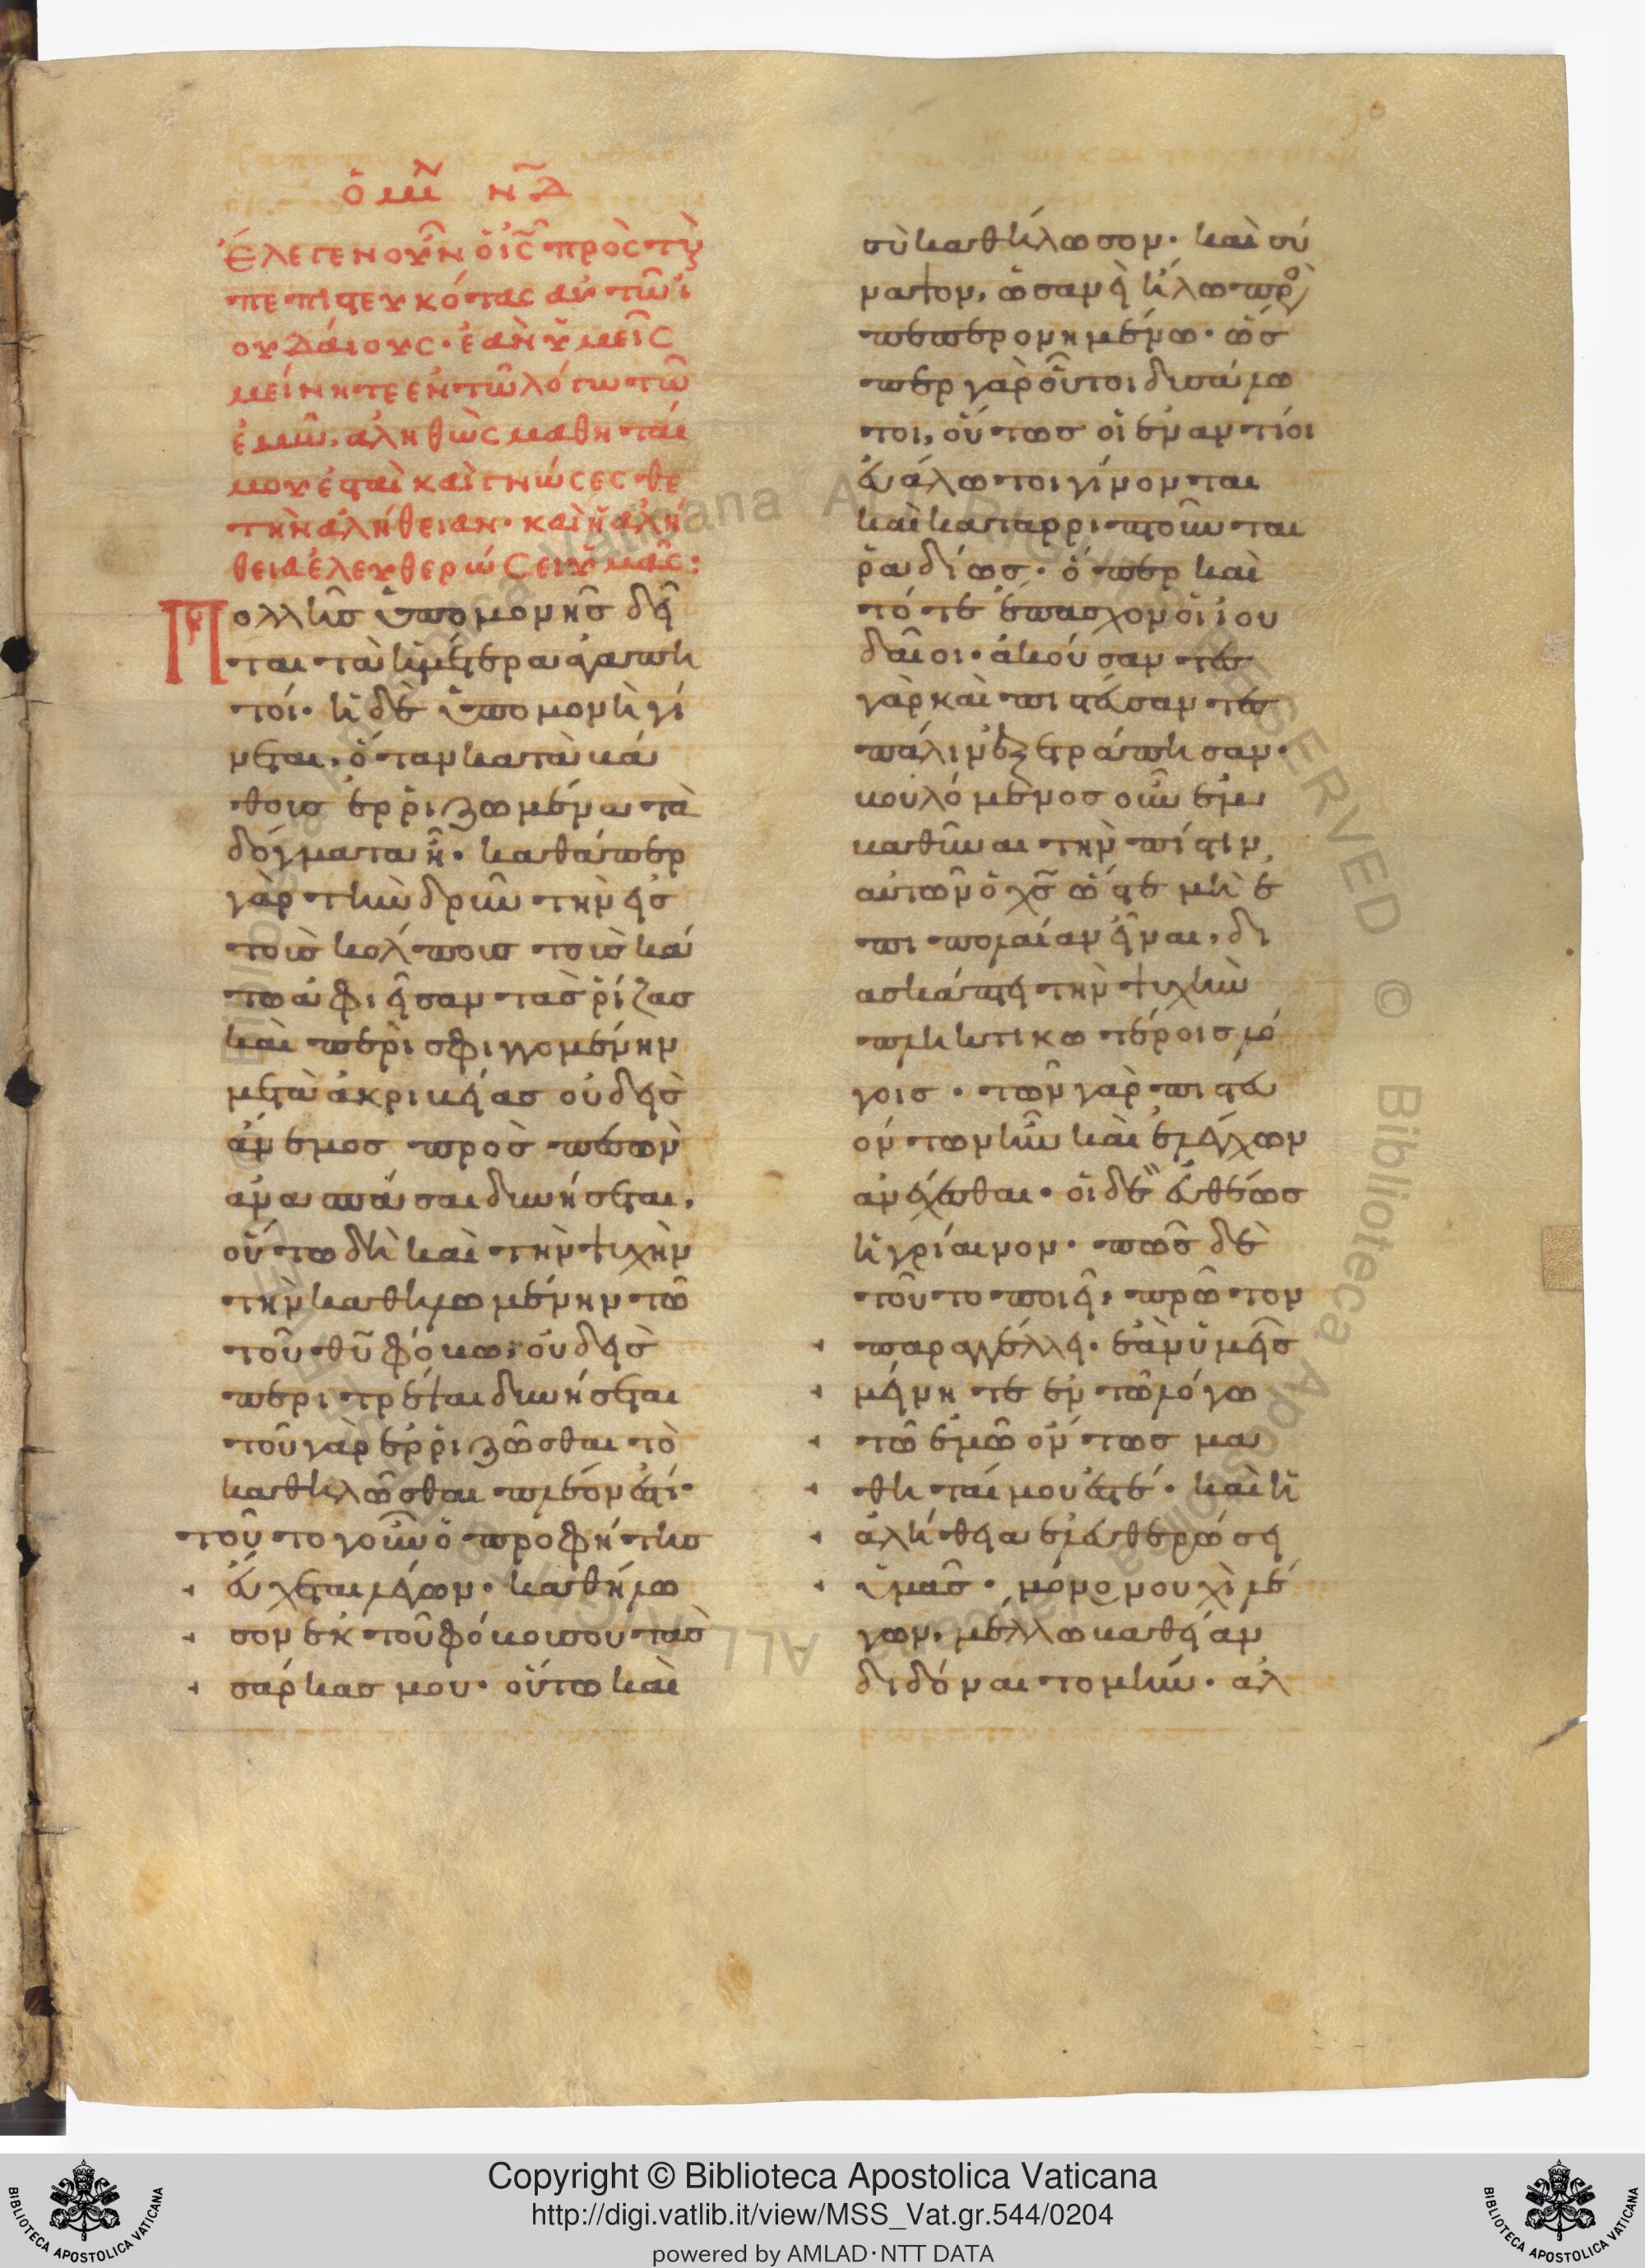 ὁμιλ νδ
Ἔλεγεν οὖν ὁ ις πρὸς τοὺς
πεπιστευκότας αὐτῶ ἰ
ουδαίους· ἐὰν ὑμεῖς
μείνητε ἐν τῶ λόγω τῶ
ἐμῶ. ἀληθῶς μαθηταί
μου ἐσταὶ καὶ γνώσεσθε
τὴν ἀλήθειαν· καὶ ἡ ἀλή
θεια ἐλευθερώσει ὑμᾶς:
Πολλῆς ὑπομονῆς δεῖ
ται τὰ ἡμέτερα ἀγαπη
τοί· ἡ δὲ ὑπομονὴ γί
νεται, ὅταν κατὰ βά
θοις ἐρριζωμένα τὰ
δόγματα ἦ· καθάπερ
γὰρ τὴν δρῦν τὴν εἰς
τοὺς κόλποις τοῖς κά
τω ἀφιεῖσαν τὰς ρίζας
καὶ περισφιγγομένην
μετὰ ἀκριβείας οὐδεὶς
ἄνεμος προσπεσὼν
ἀνασπάσαι δυνήσεται,
οὕτω δὴ καὶ τὴν ψυχὴν
τὴν καθηλωμένην τῶ
τοῦ θυ φόβω, οὐδεὶς
περιτρέψαι δυνήσεται
τοῦ γὰρ ἐρριζῶσθαι τὸ
καθηλῶσθαι πλέον ἐστί·
τοῦτο γοῦν ὁ προφήτης
εὔχεται λέγων· καθήλω
σον ἐκ τοῦ φόβου σου τὰς
σάρκας μου· οὕτω καὶ
σὺ καθήλωσον· καὶ σύ
ναψον, ὡσανεὶ ἥλω προσ
πεπερονημένω· ὥσ
περ γὰρ οὗτοι δυσάλω
τοι, οὕτως οἱ ἐναντίοι
εὐάλωτοι γίνονται
καὶ καταρριπτοῦνται
ῥαδίως· ὅπερ καὶ
τότε ἔπασχον οἱ ἰου
δαῖοι· ἀκούσαντες
γὰρ καὶ πιστεύσαντες
πάλιν ἐξετράπησαν·
βουλόμενος οὖν ἐμ
βαθῦναι τὴν πίστιν
αὐτῶν ὁ χς ὥστε μὴ ἐ
πιπολαίαν εἶναι, δι
ασκάπτει τὴν ψυχὴν
πληκτικωτέροις λό
γοις· τῶν γὰρ πιστευ
όντων ἦν καὶ ἐλέγχων
ἀνέχεσθαι· οἱ δὲ εὐθέως
ἠγρίαινον· πῶς δὲ
τοῦτο ποιεῖ, πρῶτον
παραγγέλλει· ἐὰν ὑμεῖς
μείνητε ἐν τῶ λόγω
τῶ ἐμῶ ὄντως μα
θηταί μου ἐστέ· καὶ ἡ
ἀλήθεια ἐλευθερώσει
ὑμᾶς· μόνον οὐχὶ λέ
γων, μέλλω βαθεῖαν
διδόναι τομήν· ἀλ